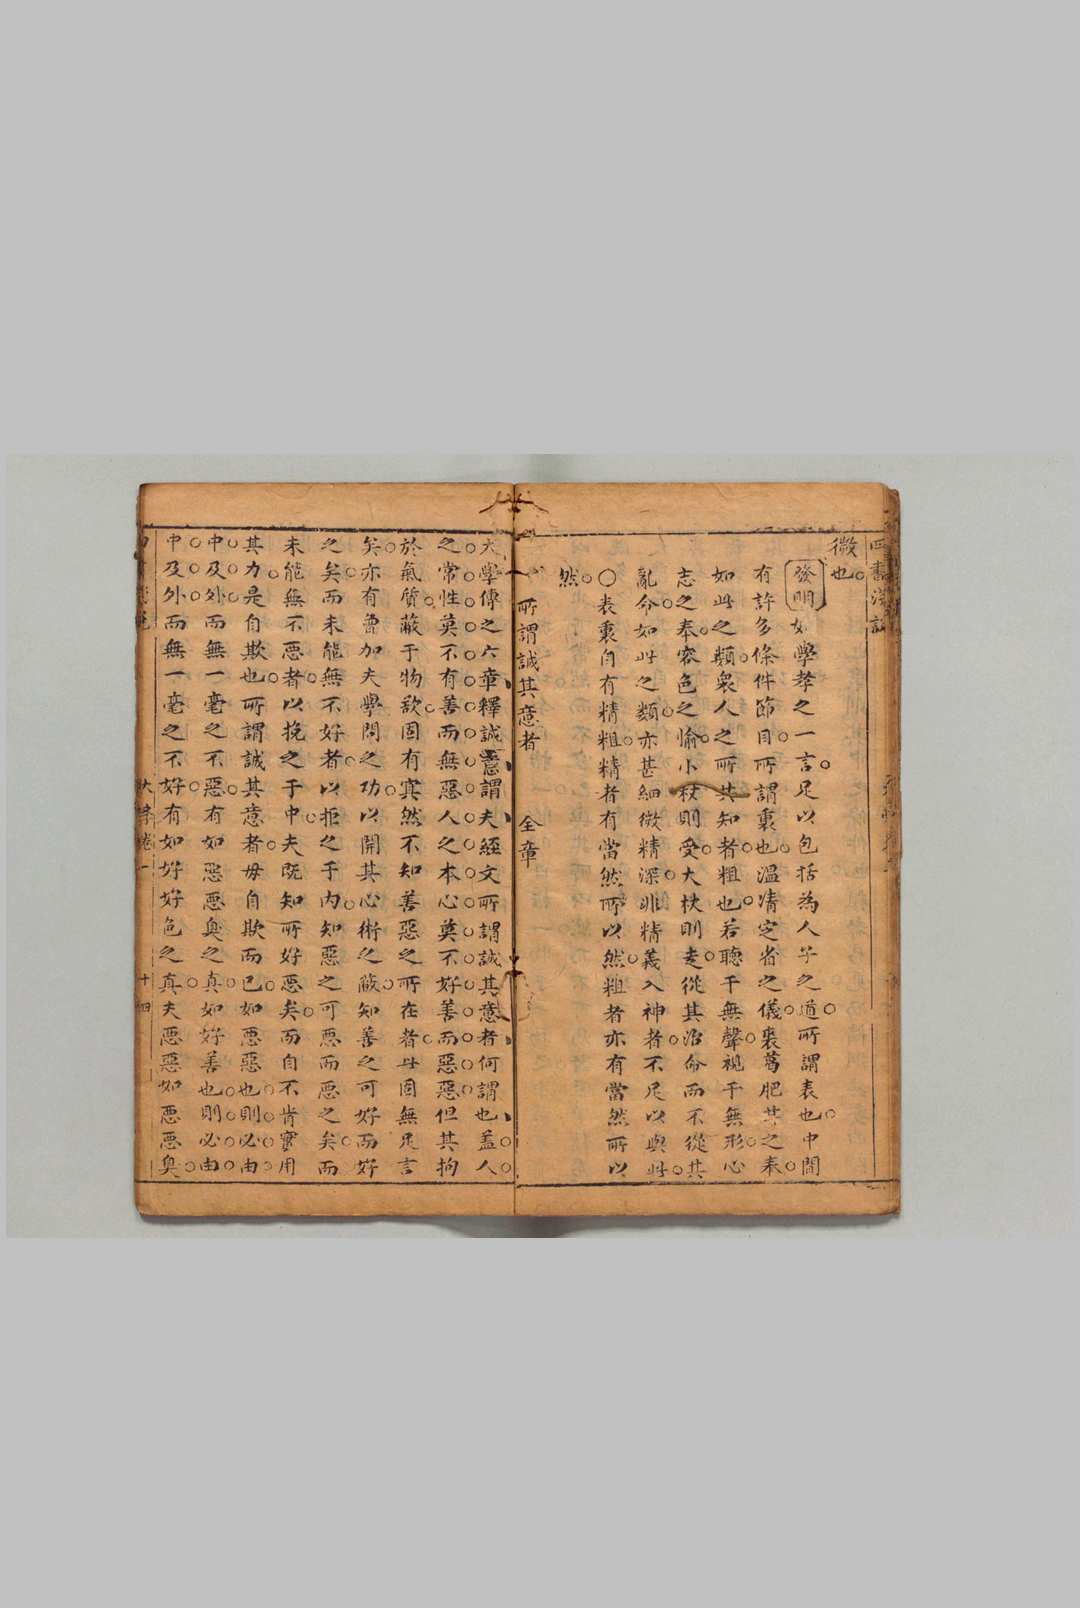 四書淺說
微也
發明如學孝之一言足以包括為人子之道所謂表也中間
有許多條件節目所謂裏也溫凊定省之儀裘葛肥甘之奉
如此之類衆人之所共知者粗也若聽于無聲視于無形心
志之奉容色之愉小杖則受大杖則走從其治命而不從其
亂命如此之類亦甚細微精深非精義入神者不足以與此
○表裏自有精粗精者有當然所以然粗者亦有當然所以
然
所謂誠其意者 全章
大學傳之六章釋誠意謂夫經文所謂誠其意者何謂也盖人
之常性莫不有善而無惡人之本心莫不好善而惡惡但其拘
於氣質蔽于物欲固有寞然不知善惡之所在者母固無足言
矣亦有魯加夫學問之功以開其心術之蔽知善之可好而好
之矣而未能無不好者以拒之于內知惡之可惡而惡之矣而
未能無不惡者以挽之于中夫既知所好惡矣而自不肯實用
其力是自欺也所謂誠其意者毋自欺而已如惡惡也則必由
中及外而無一毫之不惡有如惡惡臭之真如好善也則必由
中及外而無一毫之不好有如好好色之真夫惡惡如惡惡臭
大學卷一
十四